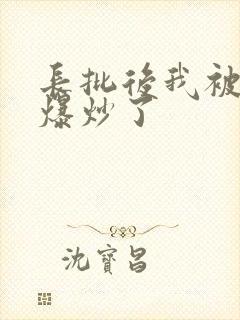 長批後我被
爆炒了
沈寶昌